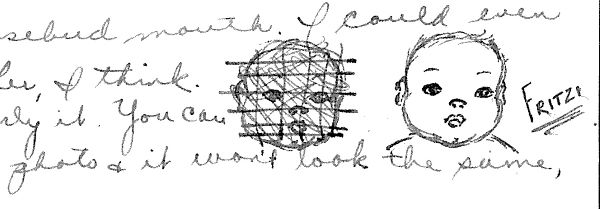 rosebud mouth. I could even
, I think.
it. You can
FRITZI
photo & it won't look the same,